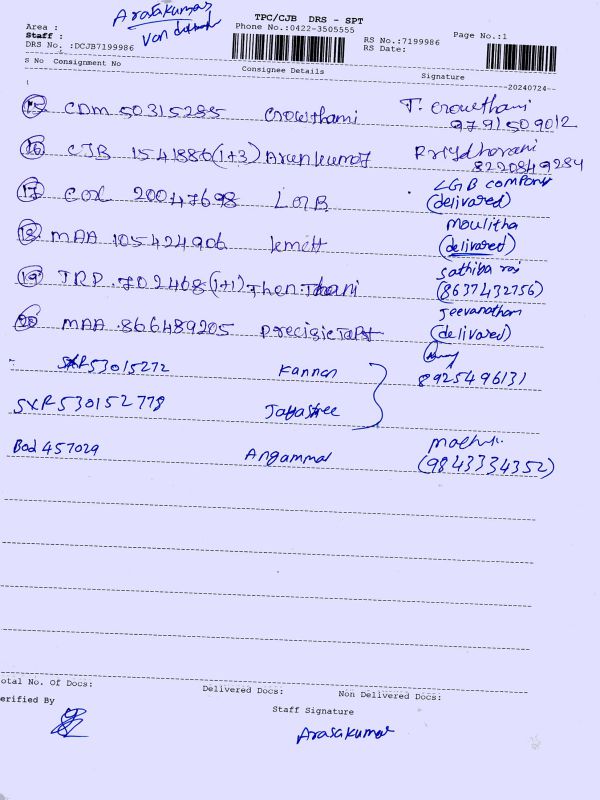 Arasakumar
TPC/CJB DRS - SPT
Area :
Staff :
Phone No.:0422-3505555
RS No.:7199986
Page No.:1
DRS No. :DCJB7199986
RS Date:
S No Consignment No
Consignee Details
Signature
--20240724--
15 CDM 50315285 Crowthami T. Crowthami
9791509012
16 CJB 1541886(1+3) Arunkumar Priydharani
8220849284
17 COX 20047698 LGB LGB company
(delivared)
18 MAA 105424906 Moulitha
(delivared)
19 TRP .702468(1+1) Sathiba raj
(8637432756)
20 MAA .866489205 Jeevanatham
(delivared)
SXR53015272 Kannan 8925496131
SXR530152778 Jayashree
Bod 457029 Angammal
(9843334352)
otal No. Of Docs:
Delivered Docs:
Non Delivered Docs:
erified By
Staff Signature
Arasakumar